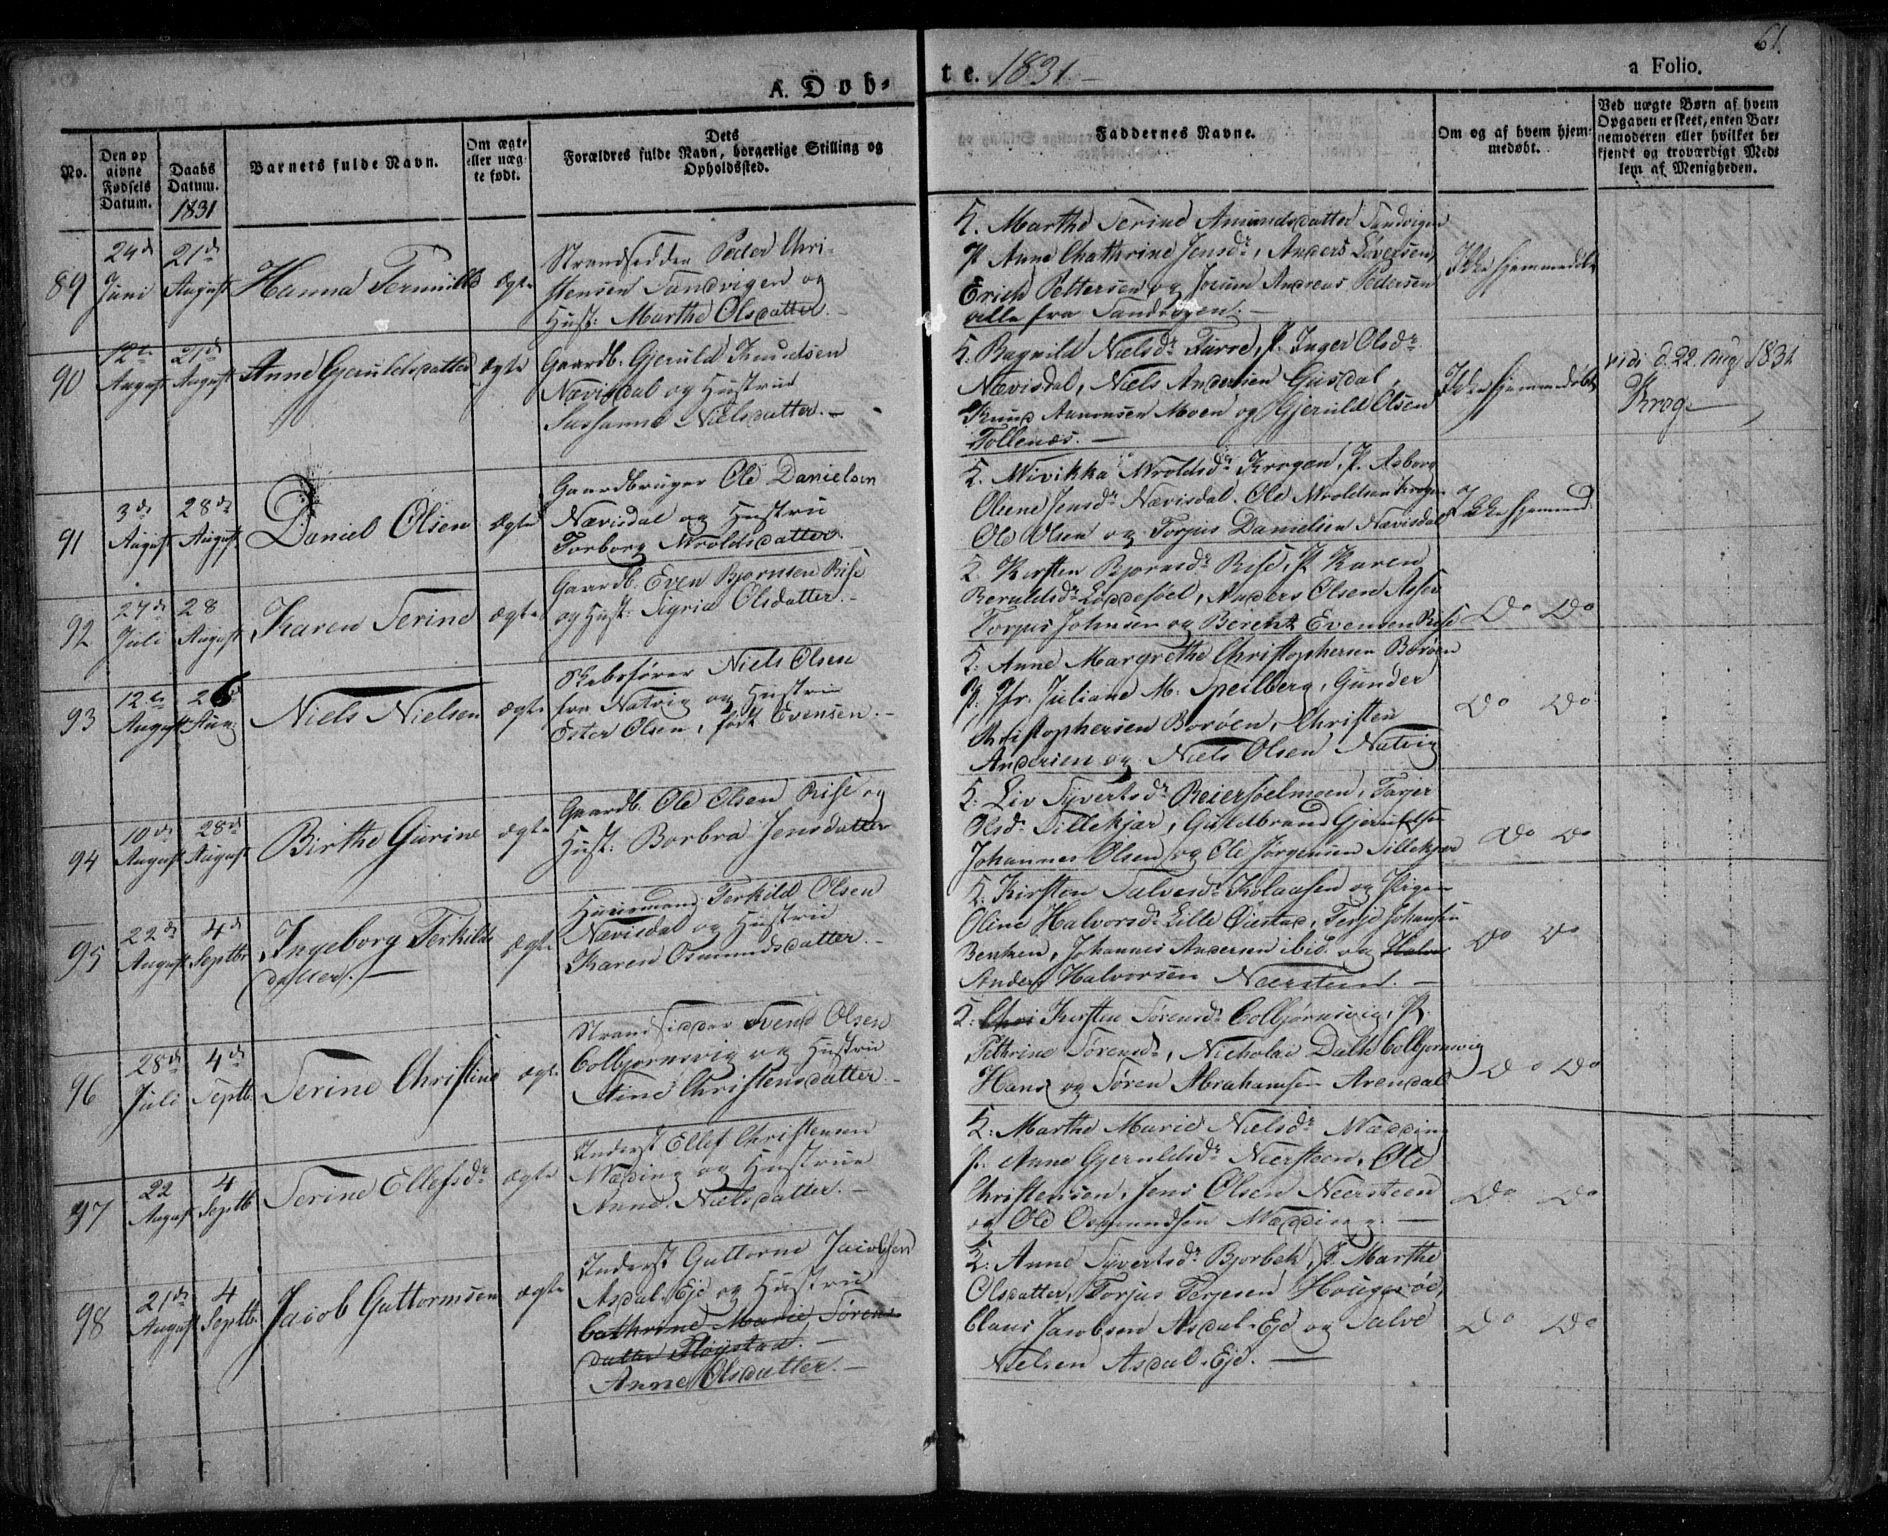 61.
A. Døb-
te. 1831.-
a Folio.
No.
Den op
givne
Fødsels
Datum.
Daabs
Datum.
1831
Barnets fulde Navn.
Om ægte
eller uæg-
te født.
Dets
Forældres fulde Navn, borgerlige Stilling og
Opholdssted.
Faddernes Navne.
Om og af hvem hjem-
medøbt.
Ved uægte Børn af hvem
Opgaven er skeet, enten Bar-
nemoderen eller hvilket be-
kjendt og troværdigt Med-
lem af Menigheden.
89
24de Juni
21de August
Hanna
ægte
Strandsidder Peder Chri-
stensen Sandvigen og
Hust: Marthe Olsdatter.-
K. Marthe Serine Amundsdatter Sandvigen
P. Anne Chathrine Jensdr, Anders
Erich Pettersen og Jørum Andreas Pedersen
alle fra Sandvigen.-
Ikke hjemmedøbt
90
12te August
21de August
Anne Gjeruldsdatter
ægte
Gaardb. Gjeruld Knudsen
Nævisdal og Hustrue
Sussanne Nielsdatter.-
K. Ragnild Nielsdr Furre, P. Inger Olsdr
Nævisdal, Niels Andersen Gusdal,
Knud Aanonsen Moen og Gjeruld Olsen
Tollenæs.-
Ikke hjemmedøbt
vidi d. 22 Aug 1831
Krog
91
3de August
28de August
Daniel Olsen
ægte
Gaardbruger Ole Danielsen
Nævisdal og Hustrue
Torborg Aroldsdatter.
K. Wivikka Aroldsdr Krogen, P. Asborg
Olsene Jensdr Nævisdal. Ole Aroldsen Krogen
Ole Olsen og Torjus Danielsen Nævisdal
Ikke hjemmed
92
27de Juli
28 August
Karen Serine
ægte
Gaardb. Even Bjørnsen Rise
og Hust: Sigrid Olsdatter.-
K. Kirsten Bjornsdr Rise, P. Karen
Beruldsdr Løddesøel, Anders Olsen Asser
Torjus Johnsen og Berent Evensen Rise
Do Do
93
12te August
26 Aug
Niels Nielsen
ægte
Skibsfører Niels Olsen
fra Natvig og Hustrue
Ester Olsen, født Evensen.-
K: Anne Margrethe Christophersen Borøen
P. Jfr. Juliane M. Speilberg, Gunder
Christophersen Borøen, Christen
Andersen og Niels Olsen Natvig
Do Do
94
10de August
28de August
Birthe Gurine
ægte
Gaardb. Ole Olsen Rise og
Hust: Borbra Jensdatter
K: Liv Syvertsdr Reiersøelmoen, Tarjer
Olsdr Tillekjær, Guldbrand Gjeruldsen
Johannes Olsen og Ole Jørgensen Tillekjær
Do Do
95
22de August
4de Septbr
Ingeborg Terkilds-
datter.-
ægte
Huusmand Terkild Olsen
Nævisdal og Hustrue
Karen Osmundsdatter.-
K. Kirsten Salvesdr Kolaasen og Pigen
Oline Halvorsdr Lille Øiestad, Terje Johansen
Johannes Andersen ibid. og Halvor
Anders Halvorsen Neersteen.-
Do Do
96
28de Juli
4de Septb.
Serine Christine
ægte
Strandsidder Svend Olsen
Colbjørnsvig og Hustrue
Stine Christensdatter.-
K: Chri Kirsten Sørensdr Colbjørnsvig, P.
Pethrine Sørensdr, Nicholai Dalh Colbjornsvig
Hans og Søren Abrahamsen Arendal
Do Do
97
22 August
4 Septb
Serine Ellefsdr
ægte
Inderst Ellef Christensen
Næding og Hustrue
Anne Nielsdatter.-
K: Marthe Marie Nielsdr Nædding
P. Anne Gjeruldsdr Neersteen, Ole
Christensen, Jens Olsen Neersteen
og Ole Osmundsen Nædding.-
Do Do
98
21de August
4 Septbr
Jacob Guttormsen
ægte
Inderst Guttorm Jacobsen
Asdal Eje og Hustrue
Cathrine Marie Sørens-
datter Fløistad.-
Anne Olsdatter.-
K: Anne Syvertsdr Bjorbek, P. Marthe
Olsdatter, Torjus Terjesen Hougerøe,
Claus Jacobsen Asdal-Eje og Salve
Nielsen Asdal-Eje.-
Do Do